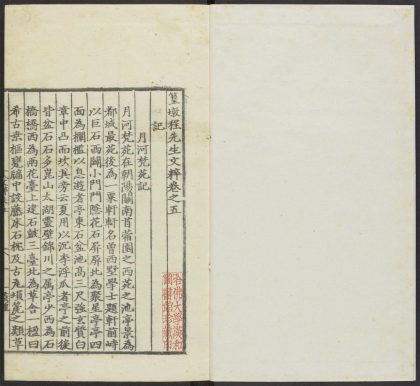 篁墩程先生文粹卷之五
記
月河梵苑記
月河梵苑在朝陽關南苜蓿園之西苑之池亭景為
都城最苑後為一粟軒軒名曾西墅學士題軒前峙
以巨石西闢小門門隱花石屏屏北為聚星亭亭四
面為欄檻以息遊者亭東石盆池高三尺強玄質白
章中凸而坎其旁云夏用以沉李浮瓜者亭之前後
皆盆石石多崑山太湖靈壁錦川之屬亭少西為石
橋橋西為雨花臺上建石鼓三臺北為草舍一楹曰
希古桑樞甕牖中設藤床石枕及古瓦塤篪之類草